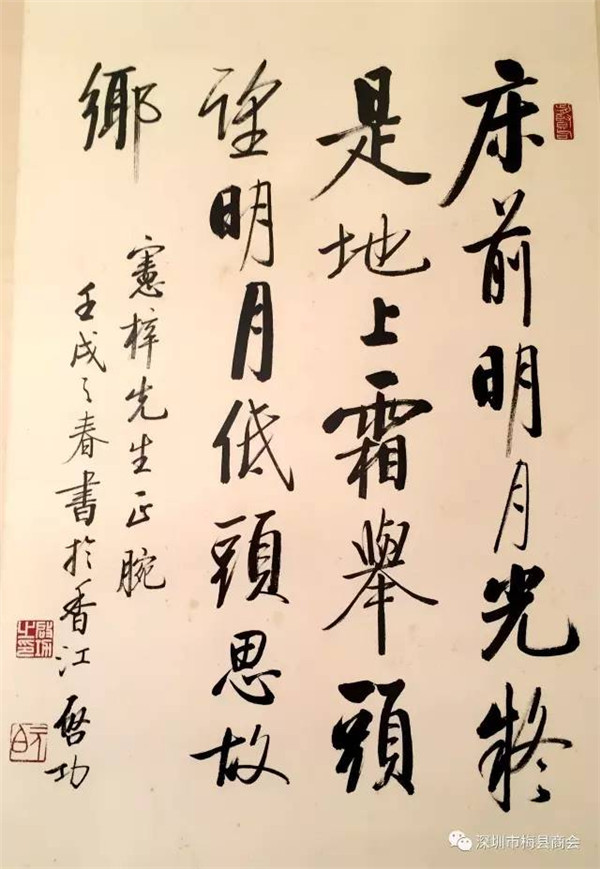 床前明月光疑
是地上霜舉頭
望明月低頭思故
鄉
憲梓先生正腕
壬戌之春書於香江 啟功
啟功之印
元白
深圳市梅县商会